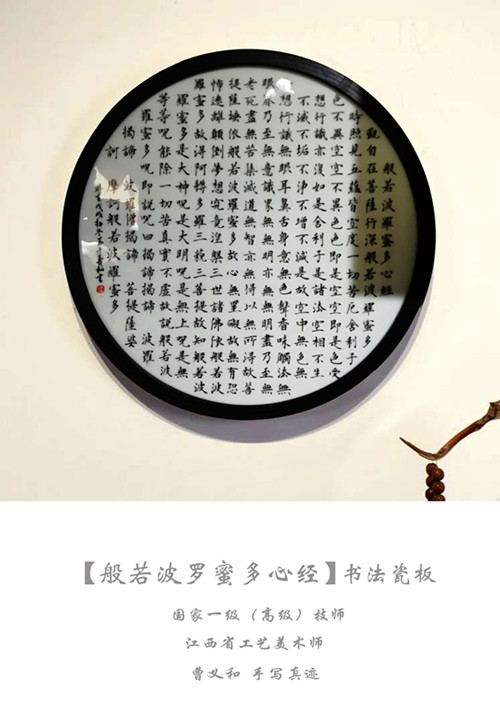 般若波羅蜜多心經
觀自在菩薩行深般若波羅蜜多
時照見五蘊皆空度一切苦厄舍利子
色不異空空不異色色即是空空即是色受
想行識亦復如是舍利子是諸法空相不生
不滅不垢不淨不增不減是故空中無色無受
想行識無眼耳鼻舌身意無色聲香味觸法無
眼界乃至無意識界無無明亦無無明盡乃至無
老死盡無苦集滅道無智亦無得以無所得故菩
提薩埵依般若波羅蜜多故心無罣礙故無有恐
怖遠離顛倒夢想究竟涅槃三世諸佛依般若波
羅蜜多故得阿耨多羅三藐三菩提故知般若波
羅蜜多是大神呪是大明呪是無上呪是無
等等呪能除一切苦真實不虛故說般若波
羅蜜多呪即說呪曰揭諦揭諦 波羅
揭諦 波羅僧揭諦 菩提薩婆
訶 摩訶般若波羅蜜多
【般若波罗蜜多心经】书法瓷板
国家一级（高级）技师
江西省工艺美术师
曹义和 手写真迹